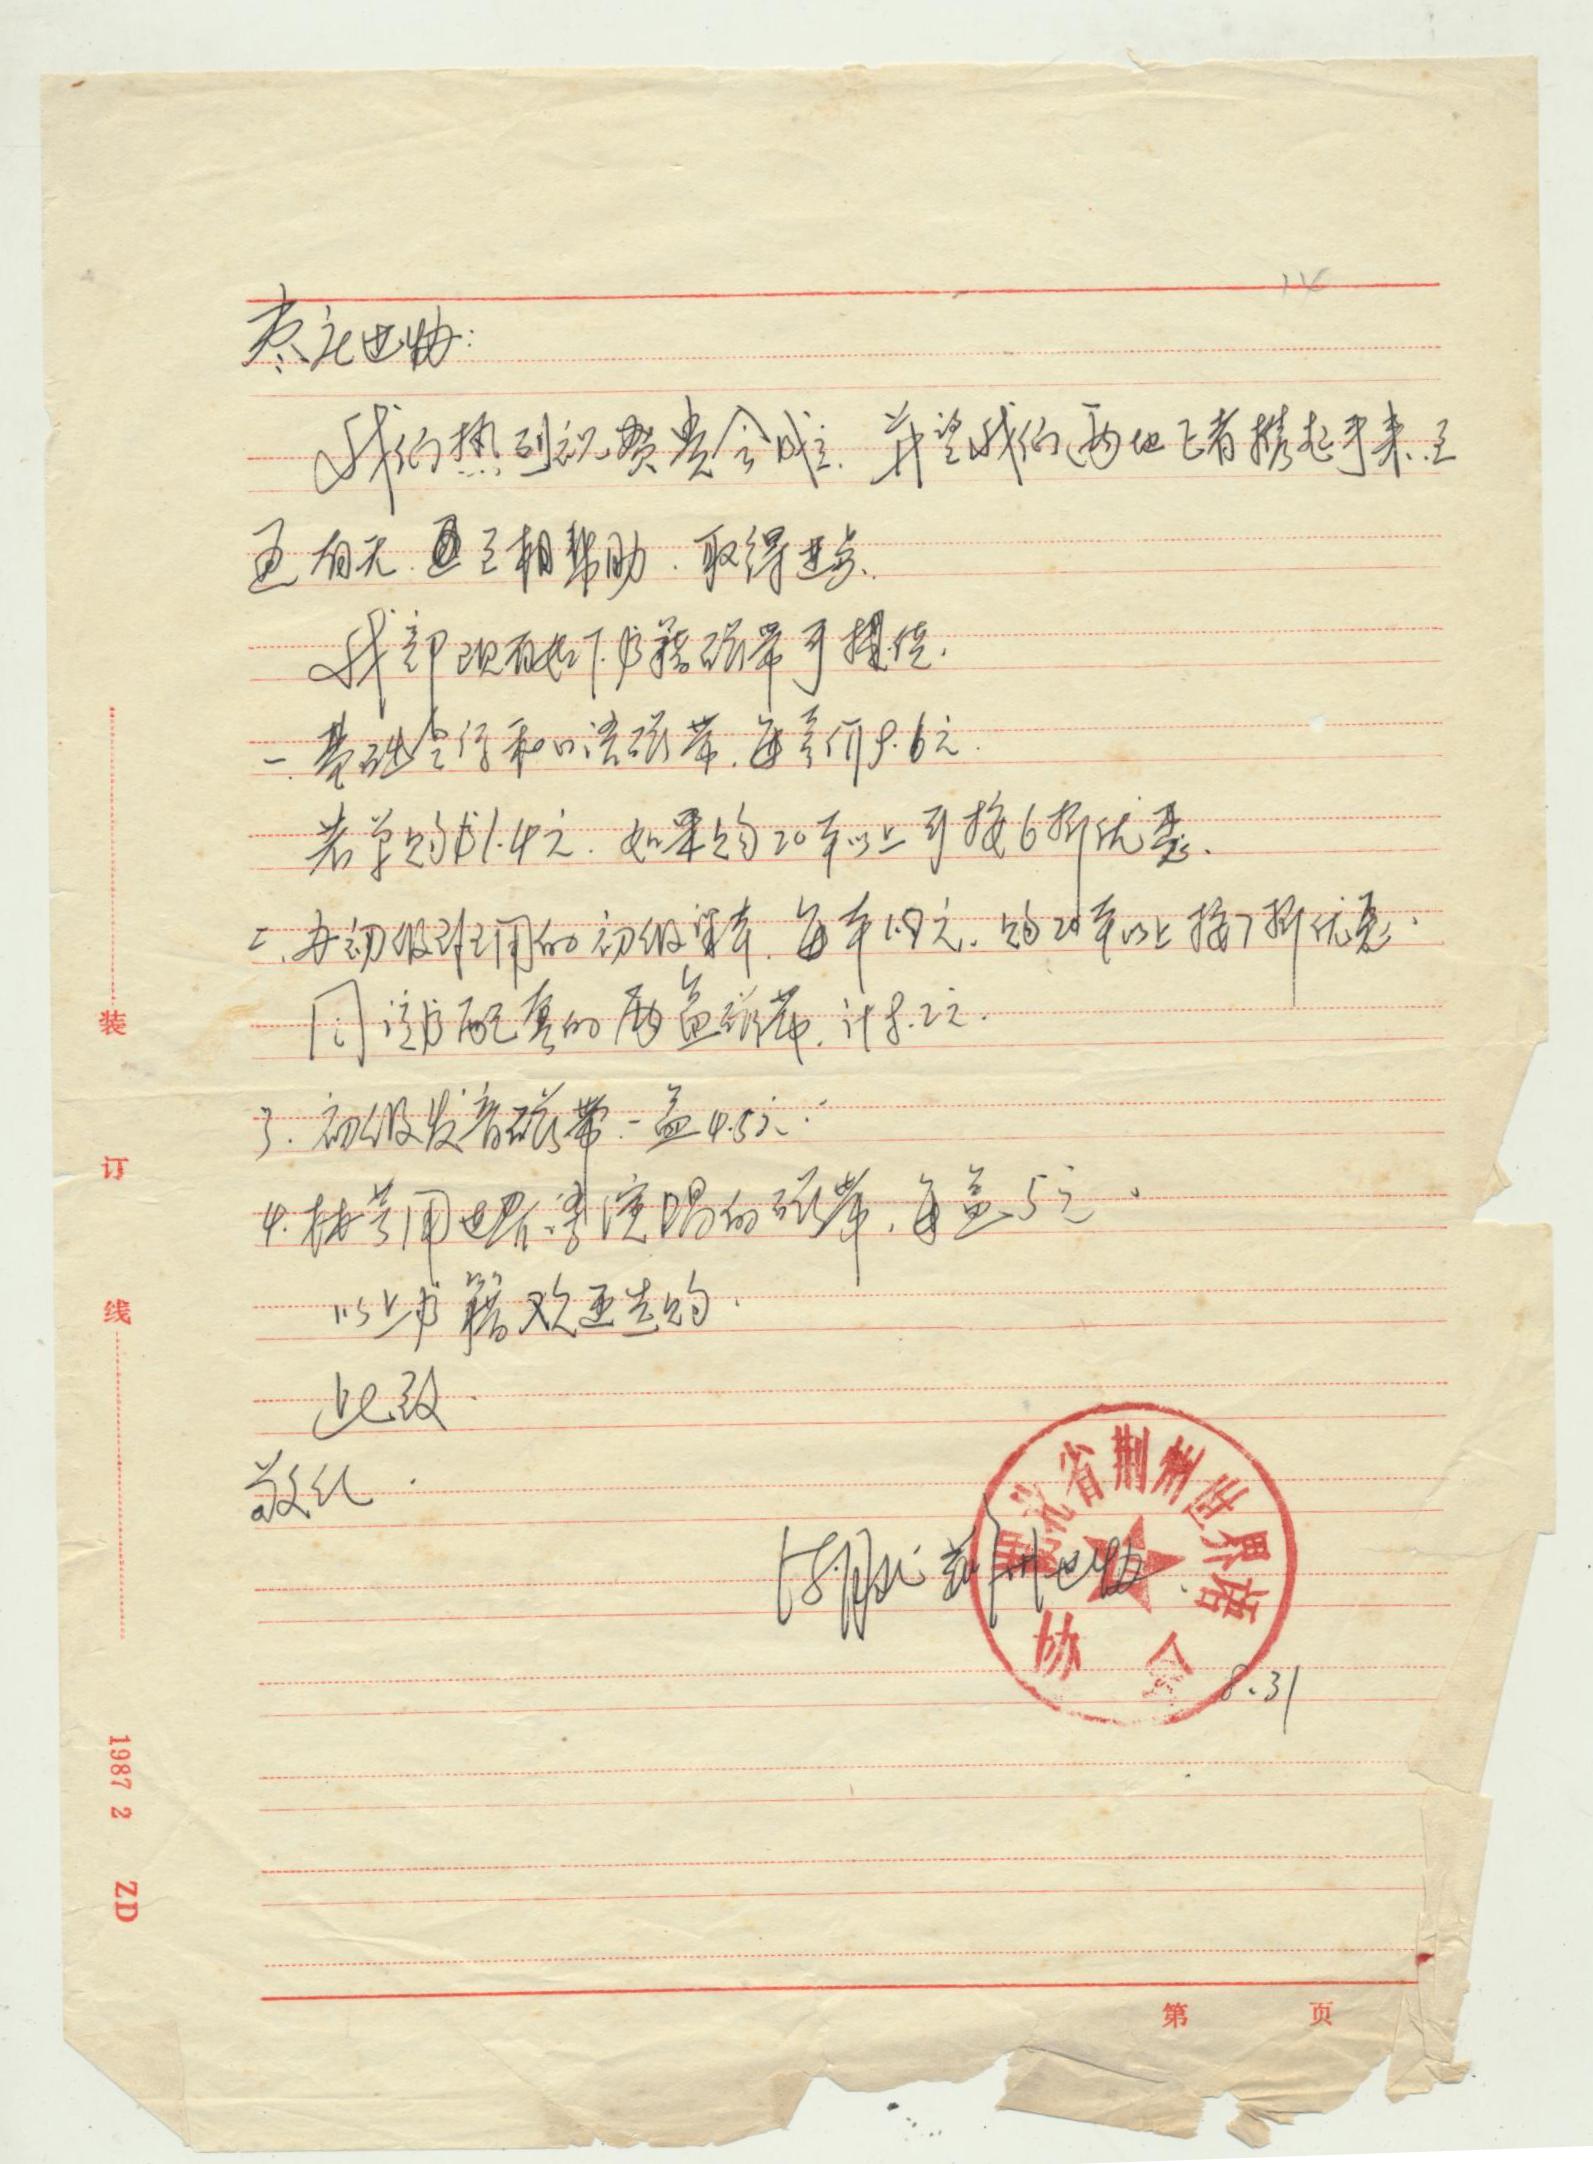 枣庄世协:
我们热烈祝贺贵会成立. 并望我们两地E者携起手来.互
通有无. 互相帮助. 取得进步.
我部现有如下书籍磁带可提供.
一. 基础 和口语磁带. 每套价9.6元.
若单购书1.4元. 如果购20本以上可按6折优惠.
二. 办初级班用的初级课本. 每本1.8元. 购20本以上按7折优惠.
同该书配套的两盒磁带. 计8.2元.
3. 初级发音磁带一盒4.5元.
4. 用世界语演唱的磁带. 每盒5元.
以上书籍欢迎选购.
此致
敬礼.
湖北荆州世协
湖北省荆州世界语
协会
8.31
装
订
线
1987 2 ZD
第 页